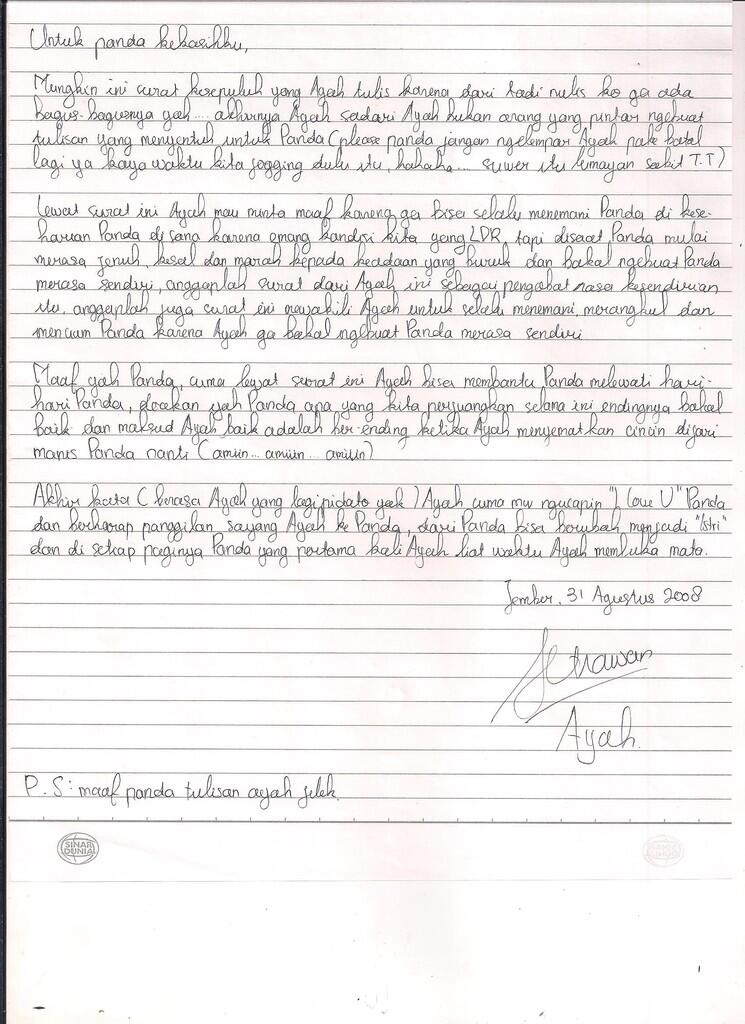 Untuk panda kekasihku,
Mungkin ini surat kesepuluh yang Ayah tulis karena dari tadi nulis ko ga ada
bagus-bagusnya yah.... akhirnya Ayah sadari Ayah bukan orang yang pintar ngebuat
tulisan yang menyentuh untuk Panda (please panda jangan ngelempar Ayah pake botol
lagi ya kaya waktu kita jogging dulu itu, hahaha... suwer itu lumayan sakit T.T)
Lewat surat ini Ayah mau minta maaf karena ga bisa selalu menemani Panda di kese-
harian Panda di sana karena emang kondisi kita yang LDR, tapi disaat Panda mulai
merasa jenuh, kesal dan marah kepada keadaan yang buruk dan bakal ngebuat Panda
merasa sendiri, anggaplah surat dari Ayah ini sebagai pengobat rasa kesendirian
itu, anggaplah juga surat ini mewakili Ayah untuk selalu menemani, merangkul dan
mencium Panda karena Ayah ga bakal ngebuat Panda merasa sendiri
Maaf yah Panda, cuma lewat surat ini Ayah bisa membantu Panda melewati hari-
hari Panda, doakan yah Panda apa yang kita perjuangkan selama ini endingnya bakal
baik dan maksud Ayah baik adalah ber-ending ketika Ayah menyematkan cincin dijari
manis Panda nanti (amiin... amiiin... amiiin)
Akhir kata (berasa Ayah yang lagi pidato yak) Ayah cuma mw ngucapin "I Love U" Panda
dan berharap panggilan sayang Ayah ke Panda, dari Panda bisa berubah menjadi "Istri"
dan di setiap paginya Panda yang pertama kali Ayah liat waktu Ayah membuka mata.
Jember, 31 Agustus 2008
Ayah
P.S: maaf panda tulisan ayah jelek
SINAR
DUNIA